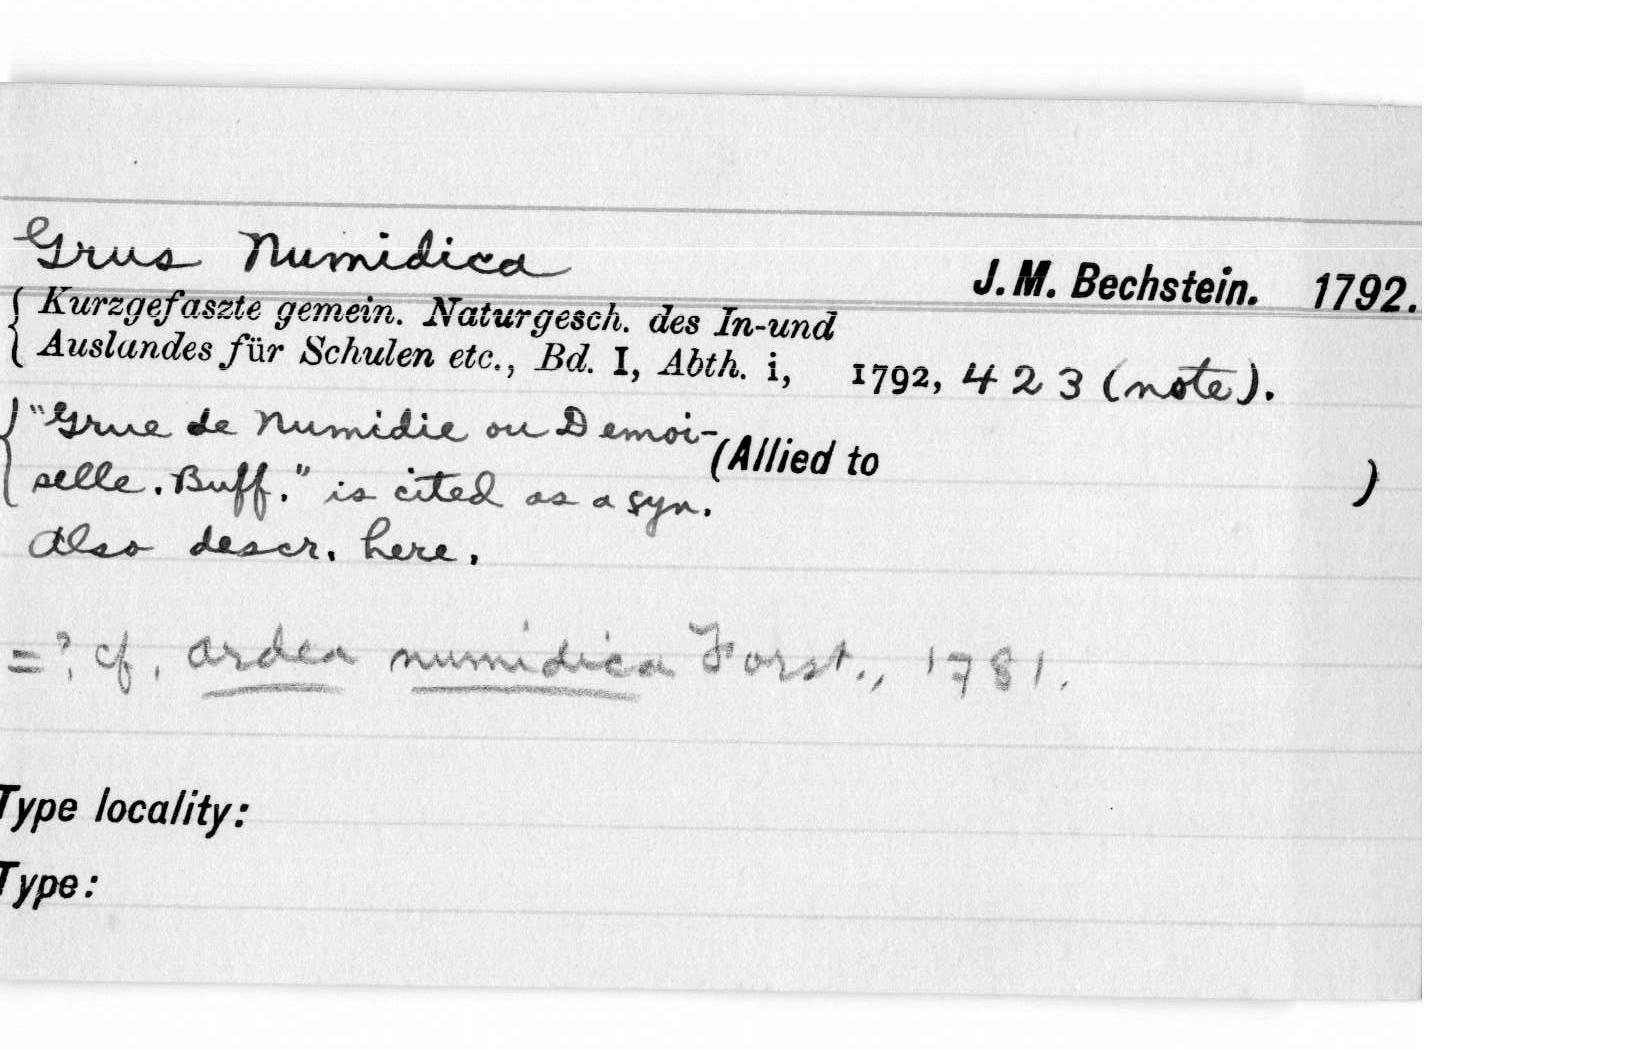 Grus Numidica
J. M. Bechstein. 1792.
{ Kurzgefaszte gemein. Naturgesch. des In-und
Auslandes für Schulen etc., Bd. I, Abth. i, 1792, 423 (note).
{ "Grue de Numidie ou Demoi-
selle. Buff." is cited as a syn.
(Allied to )
Also descr. here.
=? cf. Ardea numidica Forst., 1781.
Type locality:
Type: